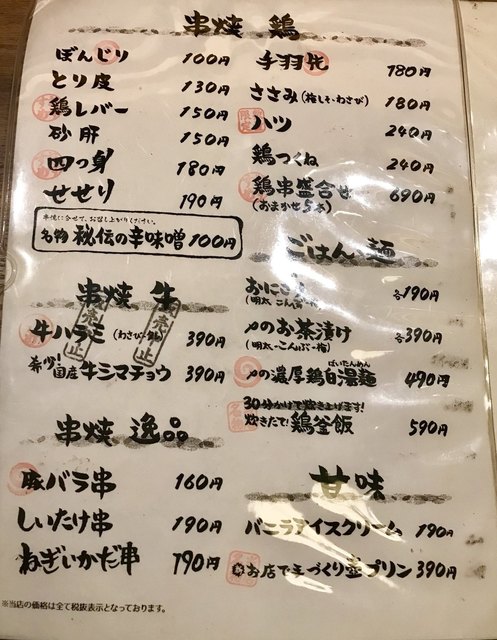 串焼 鶏
ぼんじり 100円
とり皮 130円
鶏レバー 150円
砂肝 150円
四つ身 180円
せせり 190円
串焼に合せて、お召し上がりください。
名物 秘伝の辛味噌 100円
串焼 牛
牛ハラミ (わさび 390円
売止
国産牛シマチョウ 390円
売止
串焼 逸品
豚バラ串 160円
しいたけ串 190円
ねぎいかだ串 190円
手羽先 180円
ささみ(梅しそ・わさび) 180円
ハツ 240円
鶏つくね 240円
鶏串盛合せ 690円
(おまかせ5本)
ごはん 麺
おにぎり 各190円
(明太・こんぶ・梅)
〆のお茶漬け 各390円
(明太・こんぶ・梅)
ぱいたんめん
〆の濃厚鶏白湯麺 490円
30分かけて炊き上げます!
炊きたて!鶏釜飯 590円
甘味
バニラアイスクリーム 190円
お店で手づくり壺プリン 390円
※当店の価格は全て税抜表示となっております。